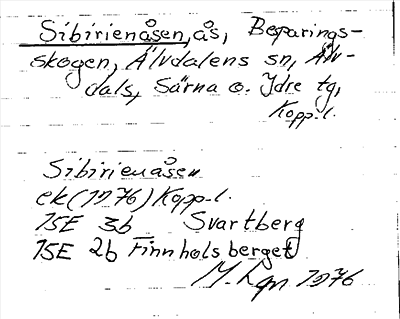 Sibirienåsen, ås, Besparings-
skogen, Älvdalens sn, Älv-
dals, Särna o. Idre tg,
Kopp.l.
Sibirienåsen
ek (1976) Kopp.l.
15E 3b Svartberg
15E 2b Finnholsberget
M. Lgn 1976